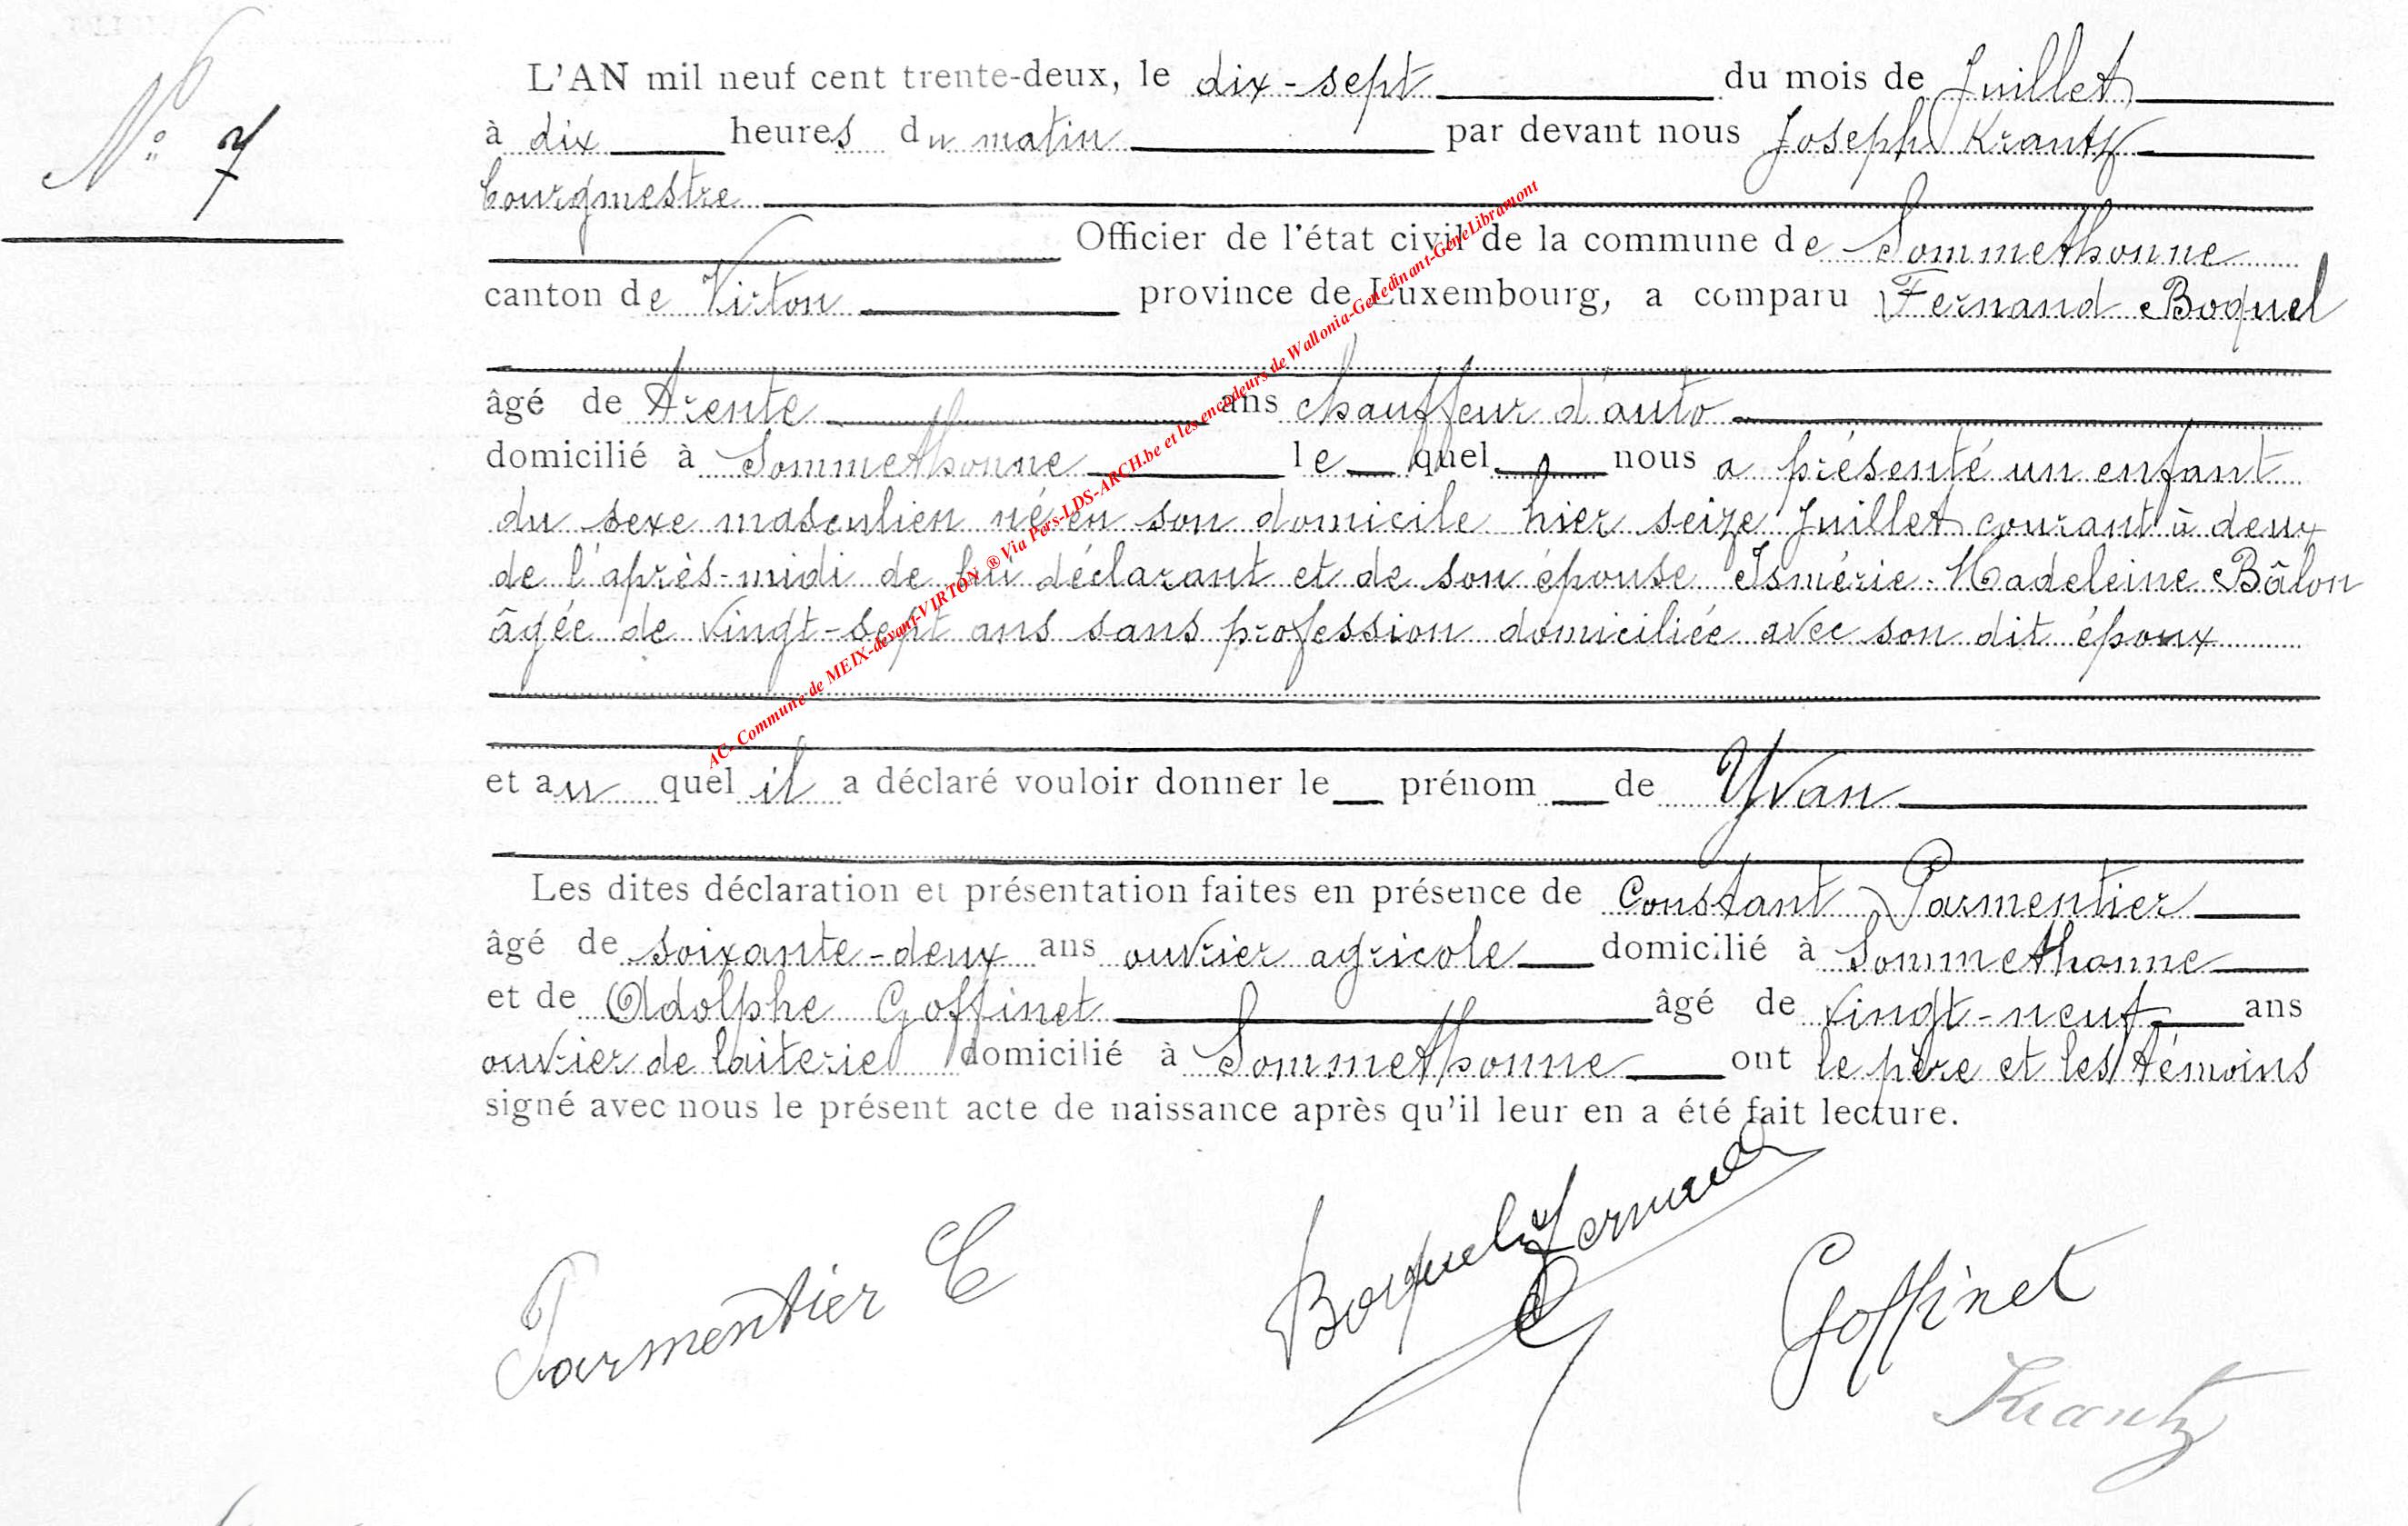 N° 7
L'AN mil neuf cent trente-deux, le dix-sept du mois de Juillet
à dix heures du matin par devant nous Joseph Krantz
bourgmestre
Officier de l'état civil de la commune de Sommethonne
canton de Virton province de Luxembourg, a comparu Fernand Boquel
âgé de trente ans chauffeur d'auto
domicilié à Sommethonne lequel nous a présenté un enfant
du sexe masculien né en son domicile hier seize Juillet courant à deux
de l'après-midi de lui déclarant et de son épouse Ismérie-Madeleine Bâlon
âgée de vingt-sept ans sans profession domiciliée avec son dit époux
et au quel il a déclaré vouloir donner le prénom de Yvan
Les dites déclaration et présentation faites en présence de Constant Parmentier
âgé de soixante-deux ans ouvrier agricole domicilié à Sommethonne
et de Adolphe Goffinet âgé de vingt-neuf ans
ouvrier de laiterie domicilié à Sommethonne ont le père et les témoins
signé avec nous le présent acte de naissance après qu'il leur en a été fait lecture.
Parmentier C
Boquel Fernand
Goffinet
Krantz
AC- Commune de MEIX-devant-VIRTON ® Via Pers-LDS-ARCH.be et les encodeurs de Wallonia-Genedinant-GeneLibramont